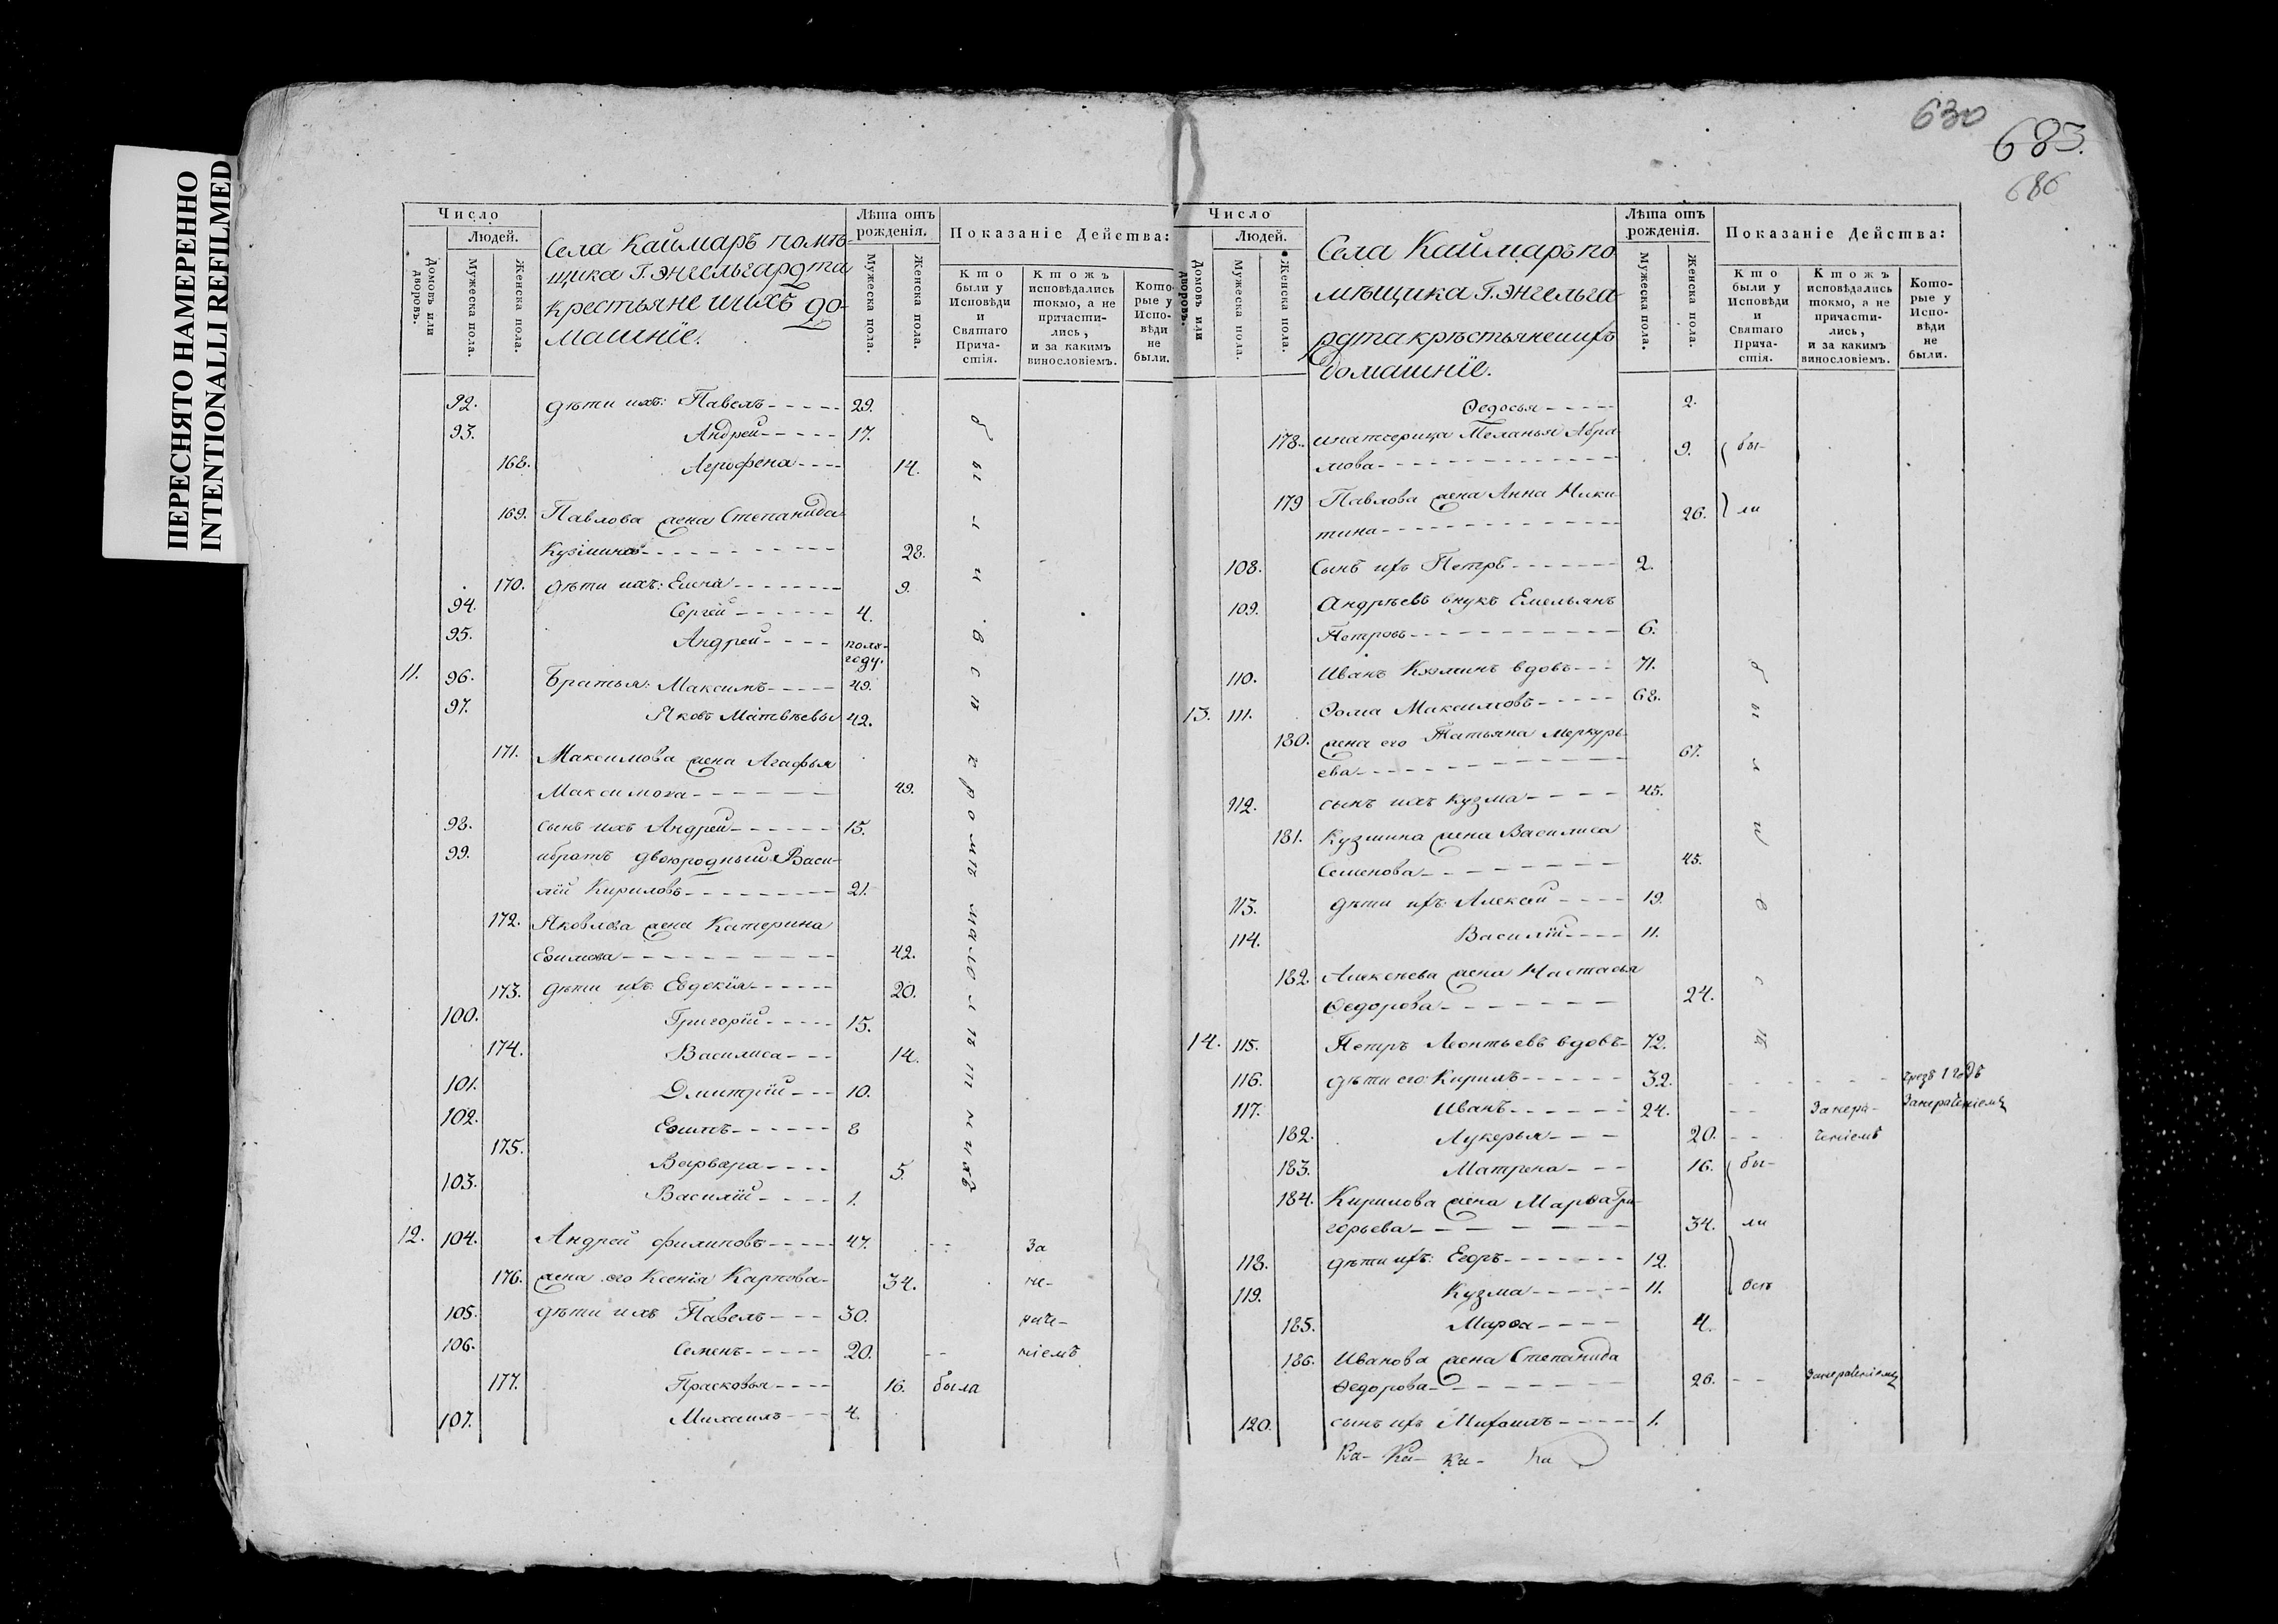 ПЕРЕСНЯТО НАМЕРЕННО
INTENTIONALLI REFILMED
630
683.
686
Число
Людей.
Домовъ или дворовъ.
Мужеска пола.
Женска пола.
Села Каймаръ помѣ-
щика Г. Энгельгардта
крестьяне ихъ до-
машнїе.
Лѣта отъ рожденія.
Мужеска пола.
Женска пола.
Показаніе Действа:
Кто были у Исповѣди и Святаго Прича-стія.
Ктожъ исповѣдались токмо, а не причасти-лись, и за какимъ винословіемъ.
Кото-рые у Испо-вѣди не были.
92. дѣти ихъ: Павелъ 29.
93. Андрей 17.
168. Агрофена 14.
169. Павлова жена Степанида
Кузмина 28.
170. дѣти ихъ: Елена 9.
94. Сергей 4.
95. Андрей полъ-
году.
11. 96. Братья: Максимъ 49.
97. Яковъ Матвѣевы 42.
171. Максимова жена Агафья
Максимова 49.
98. сынъ ихъ Андрей 15.
99. ибратъ двоюродный Васи-
лїй Кириловъ 21.
172. Яковлева жена Катерина
Еѳимова 42.
173. дѣти ихъ: Евдокїя 20.
100. Григорїй 15.
174. Василиса 14.
101. Дмитрїй 10.
102. Еѳимъ 8
175. Варвара 5.
103. Василїй 1.
были всѣ кромѣ малолѣтнихъ
12. 104. Андрей филиповъ 47. За
176. жена его Ксенїя Карпова 34. не-
105. дѣти ихъ Павелъ 30. раче-
106. Семенъ 20. нїемъ
177. Прасковья 16. была
107. Михаилъ 4.
Число
Людей.
Домовъ или дворовъ.
Мужеска пола.
Женска пола.
Села Каймаръ по
мѣщика Г. Энгельга
рдта крѣстьяне ихъ
домашнїе.
Лѣта отъ рожденія.
Мужеска пола.
Женска пола.
Показаніе Действа:
Кто были у Исповѣди и Святаго Прича-стія.
Ктожъ исповѣдались токмо, а не причасти-лись, и за какимъ винословіемъ.
Кото-рые у Испо-вѣди не были.
Ѳедосья 2.
178. ипатчерица Меланья Абра-
мова 9. бы-
179 Павлова жена Анна Ники
тина 26. ли
108. Сынъ ихъ Петръ 2.
109. Андрѣевъ внукъ Емельянъ
Петровъ 6.
110. Иванъ Кузминъ вдовъ 71.
13. 111. Ѳома Максимовъ 68.
180. жена его Татьяна Меркурь
ева 67.
112. сынъ ихъ Кузма 45.
181. Кузмина жена Василиса
Семенова 45.
113. дѣти ихъ: Алексѣй 19.
114. Василїй 11.
182. Алексѣева жена Настасья
Ѳедорова 24.
были всѣ
14. 115. Петръ Леонтьевъ вдовъ 72.
116. дѣти его: Кирилъ 32. чрезъ 1 годъ
117. Иванъ 24. Занера- Занераченїемъ
182. Лукерья 20. ченїемъ
183. Матрена 16. бы-
184. Кирилова жена Марѳа Гри-
горьева 34. ли
118. дѣти ихъ: Егоръ 12.
119. Кузма 11. всѣ
185. Марѳа 4.
186. Иванова жена Степанида
Ѳедорова 26. Занераченїемъ
120. сынъ ихъ Михаилъ 1.
Ка- Ка- Ка- Ка